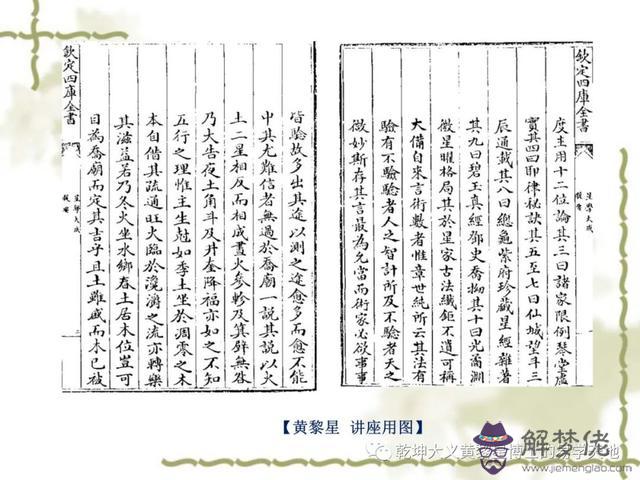 欽定四庫全書
星學大成
提要
度主用十二位論其三曰諸家限例琴堂虛
實其四曰耶律秘訣其五至七曰仙城望斗三
辰通載其八曰總龜紫府珍藏星經雜著
其九曰碧玉真經鄧史喬拗其十曰光嵩淵
微星曜格局其於星家古法纖鉅不遺可稱
大備自來言術數者惟章世純所云其法有
驗有不驗驗者人之智計所及不驗者天之
微妙斯存其言最為允當而術家必欲事事
皆驗故多出其途以測之途愈多而愈不能
中其尤難信者無過於喬廟一說其說以火
土二星相反而相成晝火參軫及箕壁無咎
乃大吉夜土角斗及井奎降福亦如之不知
五行之理惟主生尅如季土坐於凋零之木
本自偕其疏通旺火臨於溪澗之流亦轉樂
其滋益若乃冬火坐水鄉春土居木位豈可
目為喬廟而定其吉乎且土雖戚而木已被
欽定四庫全書
星學大成
提要
【黄黎星 讲座用图】
乾坤大义黄黎星博士的易学天地
解梦佬
www.jiemenglao.com